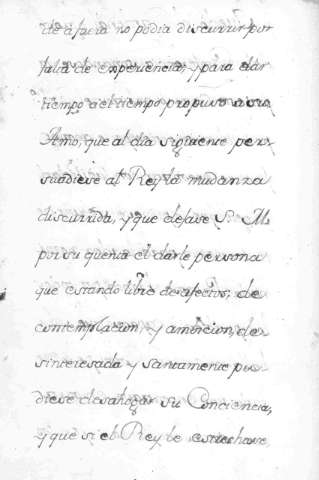 te a fuia no podia discurrir por
falta de experiencia; y para dar
tiempo a el tiempo propuso a su
Amo, que al dia siguiente per-
suadiese al Rey la mudanza
discurrida, y que dejase S. M.
por su quenta el darle persona
que estando libre de afectos; de
contemplacion y ambicion, de-
sinteresada y santamente pu-
diese desahogar su Conciencia,
y que si el Rey le estrechase